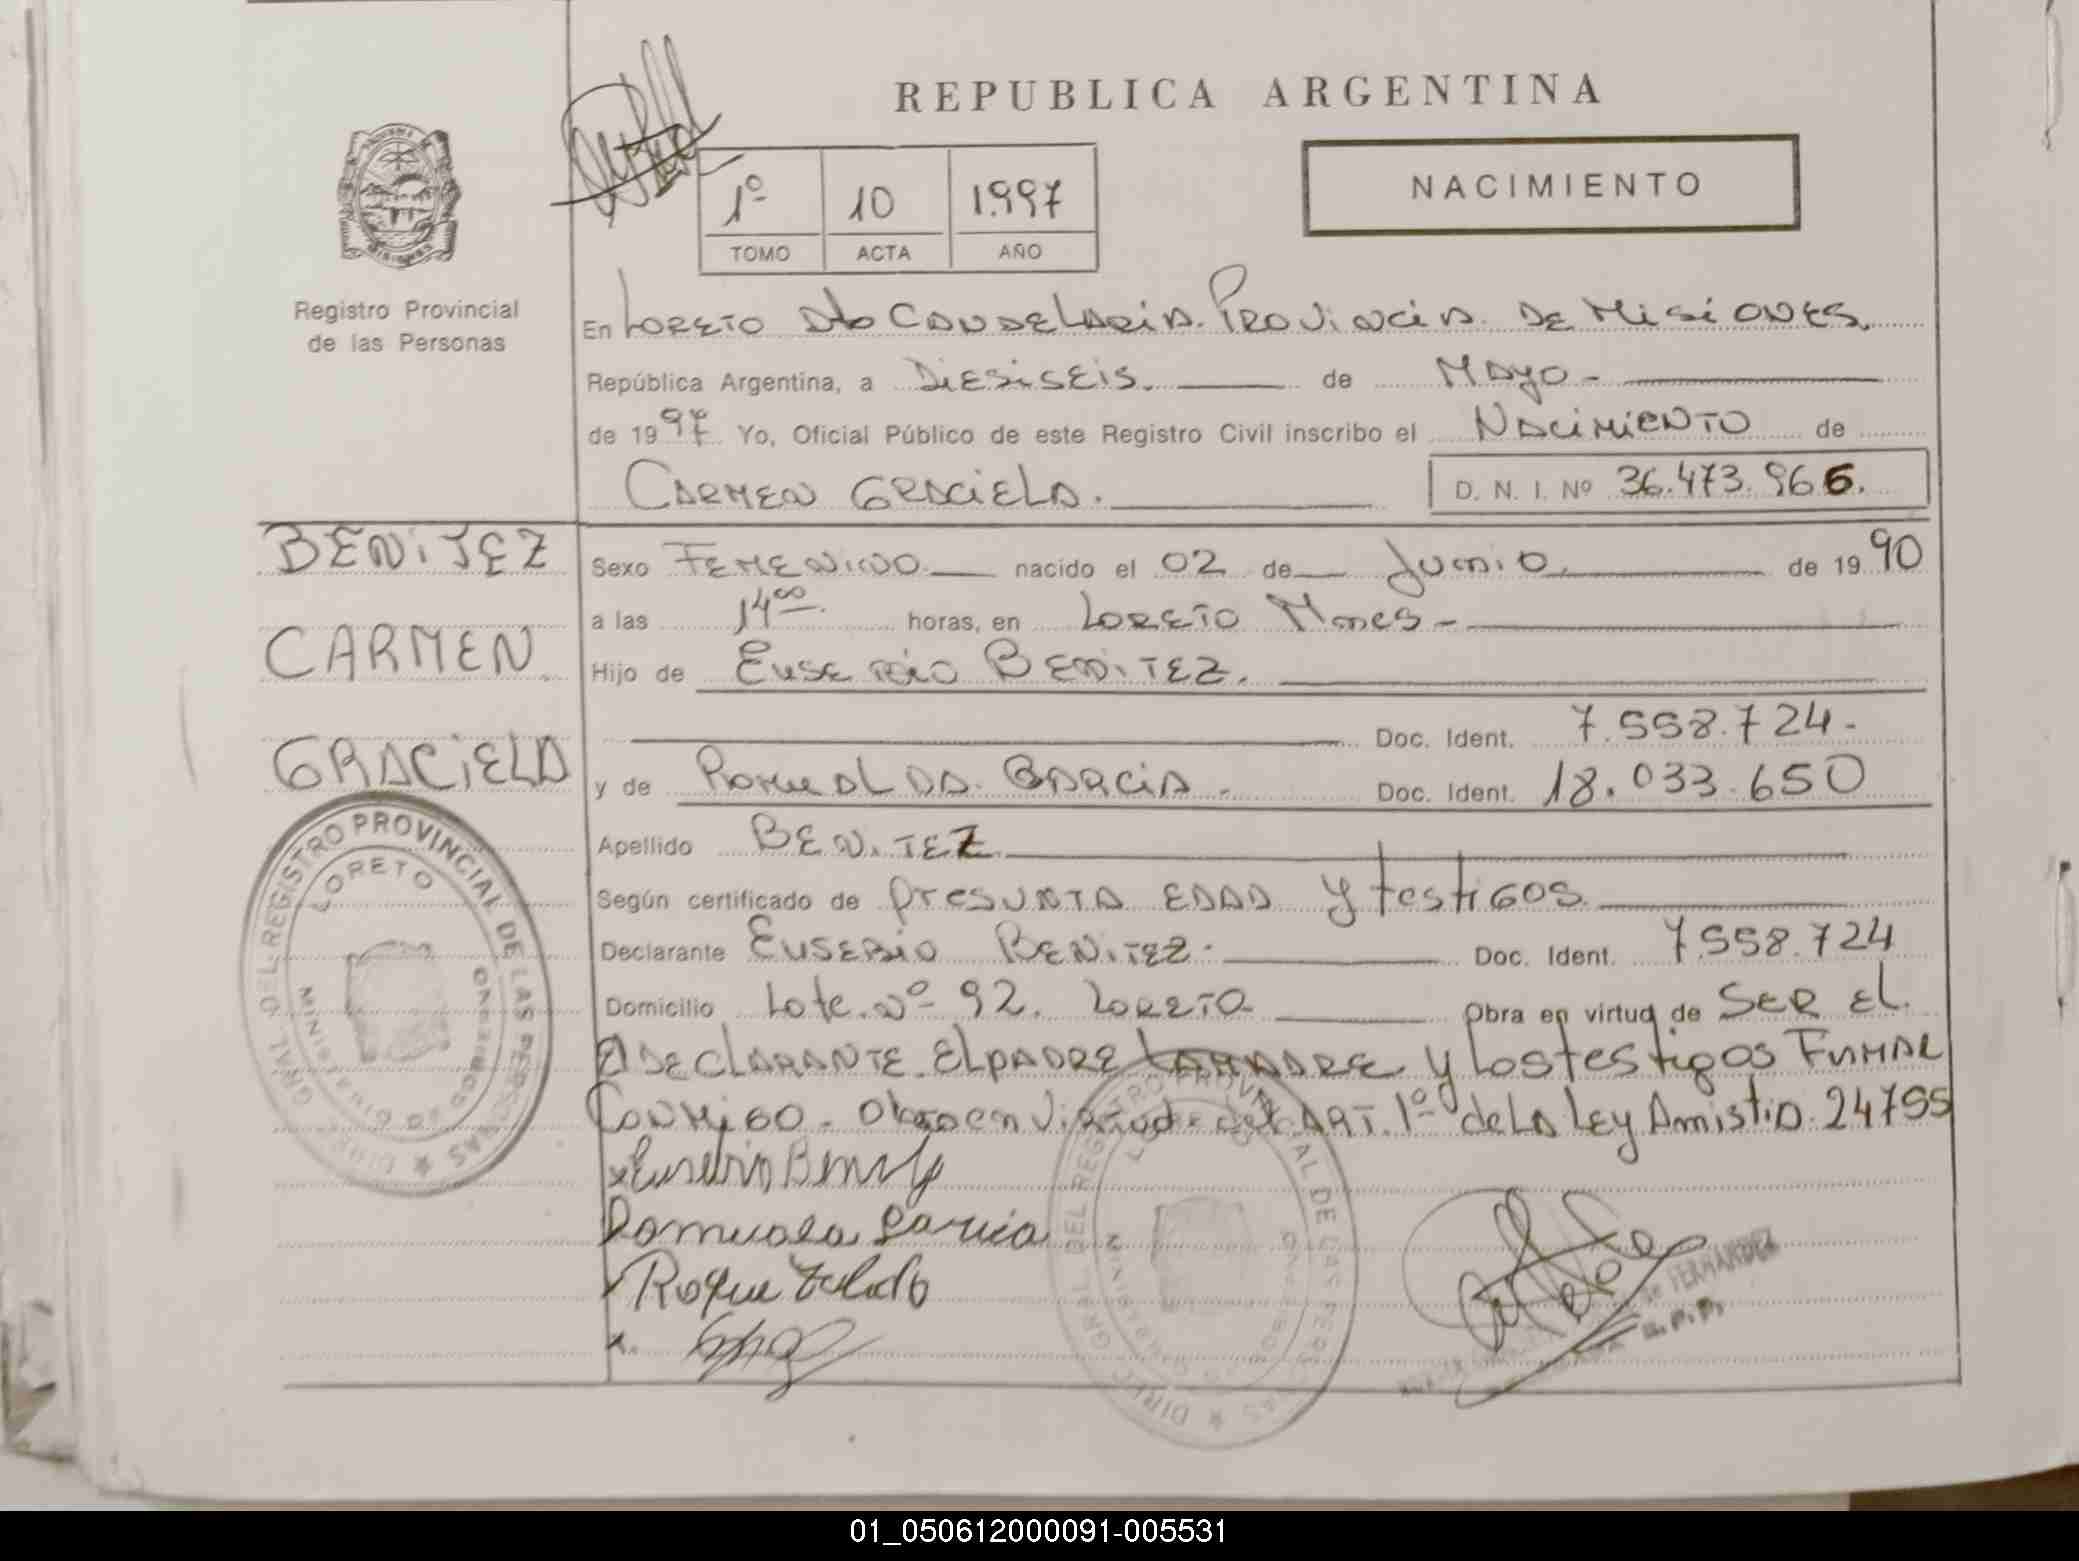 REPUBLICA ARGENTINA
NACIMIENTO
1º 10 1.997
TOMO ACTA AÑO
Registro Provincial
de las Personas
En LORETO Dto CANDELARIA. PROVINCIA DE MISIONES.
República Argentina, a DIESISEIS. de MAyo -
de 1997 Yo, Oficial Público de este Registro Civil inscribo el NACIMIENTO de
CARMEN GRACIELA. D. N. I. Nº 36.473.966.
BENITEZ
CARMEN
GRACIELA
Sexo FEMENINO nacido el 02 de Junio de 1990
a las 14 00 horas, en LORETO Mnes -
Hijo de EUSEBIO BENITEZ.
Doc. Ident. 7.558.724-
y de ROMUALDA GARCIA - Doc. Ident. 18.033.650
Apellido BENITEZ
Según certificado de PRESUNTA EDAD y testigos
Declarante EUSEBIO BENITEZ. Doc. Ident. 7.558.724
Domicilio Lote Nº 92. LORETO Obra en virtud de SER EL
DECLARANTE EL PADRE LA MADRE y LOS testigos FIRMAN
CONMIGO - Obra en Virtud del ART. 1º de LA LEy Amistia 24755
x Eusebio Benitez
Romualda Garcia
x Roque Toledo
x.
DIREC. GRAL. DEL REGISTRO PROVINCIAL DE LAS PERSONAS
LORETO
MINISTERIO DE GOBIERNO
DIREC. GRAL. DEL REGISTRO PROVINCIAL DE LAS PERSONAS
de FERNANDEZ
01_050612000091-005531